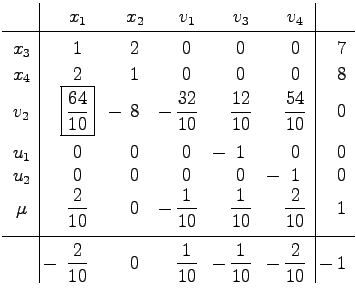 x₁ x₂ v₁ v₃ v₄
x₃ 1 2 0 0 0 7
x₄ 2 1 0 0 0 8
v₂ 64/10 − 8 − 32/10 12/10 54/10 0
u₁ 0 0 0 − 1 0 0
u₂ 0 0 0 0 − 1 0
μ 2/10 0 − 1/10 1/10 2/10 1
− 2/10 0 1/10 − 1/10 − 2/10 − 1